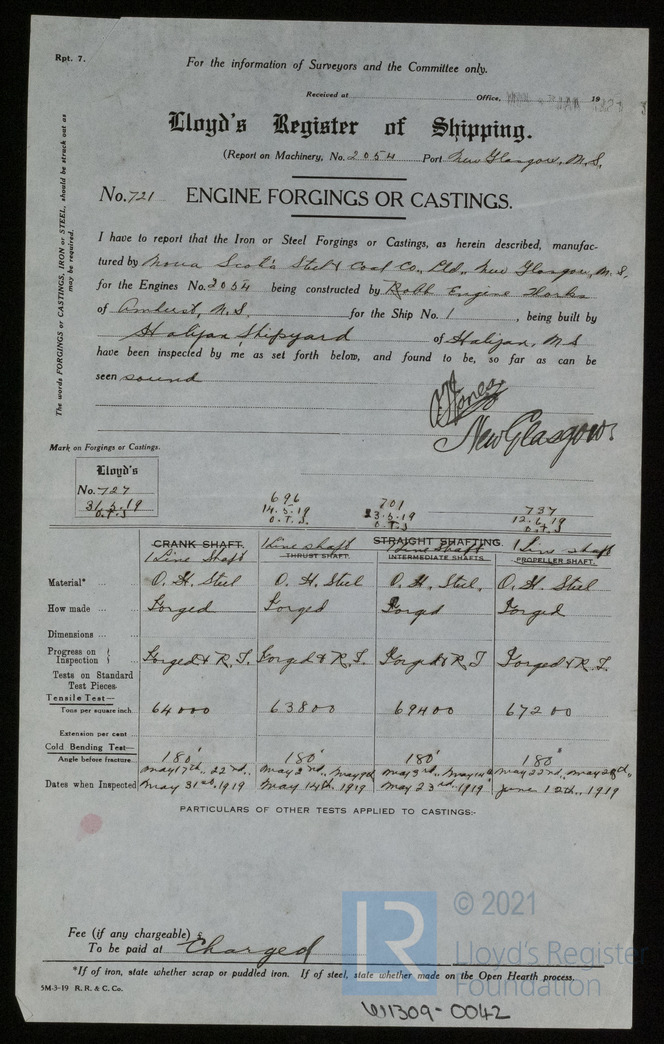 Rpt. 7.
For the information of Surveyors and the Committee only.
Received at Office, 19
Lloyd's Register of Shipping.
(Report on Machinery, No. 2054 Port New Glasgow, N.S.
No. 721 ENGINE FORGINGS OR CASTINGS.
The words FORGINGS or CASTINGS, IRON or STEEL, should be struck out as may be required.
I have to report that the Iron or Steel Forgings or Castings, as herein described, manufac-
tured by Nova Scotia Steel & Coal Co., Ltd., New Glasgow, N.S,
for the Engines No. 2054 being constructed by Robb Engine Works
of Amherst, N.S, for the Ship No. 1, being built by
Halifax Shipyard of Halifax, N.S
have been inspected by me as set forth below, and found to be, so far as can be
seen sound
O.T. Jones
New Glasgow
Mark on Forgings or Castings.
Lloyd's
No. 727
31.5.19
O.T.J
696
14.5.19
O.T.J.
701
23.5.19
O.T.J
737
12.6.19
O.T.J
CRANK SHAFT. STRAIGHT SHAFTING.
THRUST SHAFT. INTERMEDIATE SHAFTS PROPELLER SHAFT.
1 Line Shaft 1 Line shaft 1 Line Shaft 1 Line shaft
Material* ... O. H. Steel O. H. Steel O. H. Steel, O. H. Steel
How made ... Forged Forged Forged Forged
Dimensions ...
Progress on Inspection ... Forged & R.T. Forged & R.T. Forged & R.T Forged & R.T.
Tests on Standard Test Pieces
Tensile Test—
Tons per square inch 64000 63800 69400 67200
Extension per cent
Cold Bending Test—
Angle before fracture 180° 180° 180° 180°
May 17th., 22nd., May 2nd., May 9th May 3rd., May 14th May 22nd., May 28th.,
Dates when Inspected May 31st, 1919 May 14th, 1919 May 23rd 1919 June 12th., 1919
PARTICULARS OF OTHER TESTS APPLIED TO CASTINGS:-
Fee (if any chargeable) £
To be paid at Charged
*If of iron, state whether scrap or puddled iron. If of steel, state whether made on the Open Hearth process.
5M-3-19 R. R. & C. Co.
LR
© 2021
Lloyd's Register
Foundation
W11309-0042